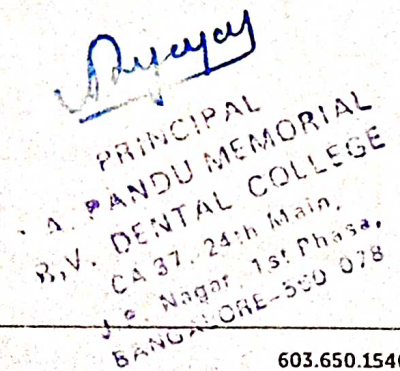 PRINCIPAL
A. PANDU MEMORIAL
R.V. DENTAL COLLEGE
CA 37, 24th Main,
J.P. Nagar, 1st Phase,
BANGALORE-560 078
603.650.1540